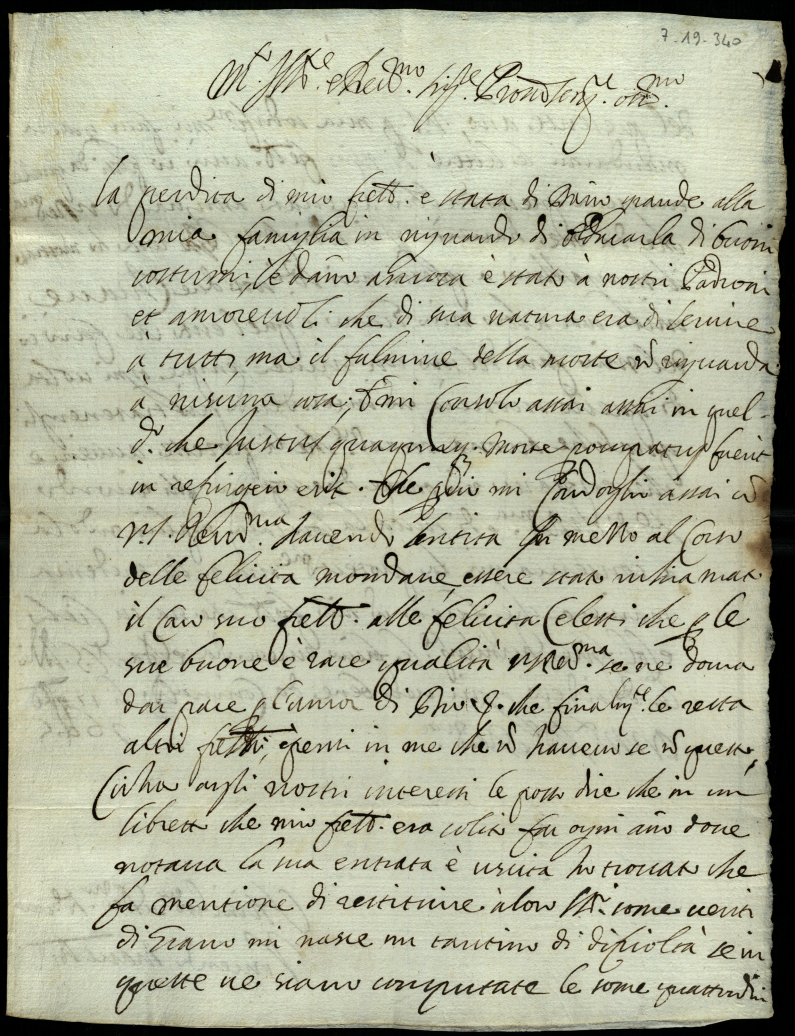 7-19-340
M.to Ill.re e Rev.mo Sig.re Pron Oss.mo
la perdita di mio frello. è stata di danno grande alla
mia famiglia in riguardo di educarla di buoni
costumi, e danno ancora è stato à nostri Padroni
et amorevoli che di sua natura era di servire
à tutti, ma il fulmine della morte nō riguarda
à nisuna cosa, mi Consolo assai assai in quel
d.o che Justus quaqumq. morte preocupatus fuerit
in refrigerio erit. Che mi Condoglio assai cō
V.S. Rev.ma havendo sentita in mezzo al Corso
delle felicita mondane, essere stato richiamato
il Caro suo frello. alle felicita Celesti che p le
sue buone è rare qualità V.S. Rev.ma se ne dovra
dar pace p l'amor di Dio che finalm.te le resta
altri frelli, pensi in me che nō havevo se nō questo,
Circa agli nostri interessi le posso dire che in un
libretto che mio frello. era solito far ogni año dove
notava la sua entrata è uscita hò trovato che
fa mentione di restituire à loro SS.ri some venti
di Grano mi nasce un tantino di dificoltà se in
queste ne siano computate le some quattordici